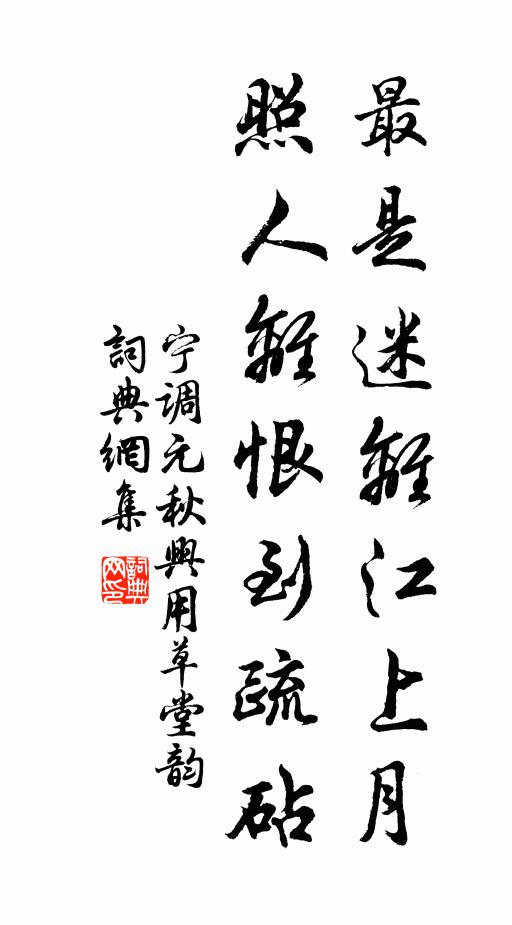 最是迷離江上月
照人離恨到疏砧
宁调元秋興用草堂韵
詞典網集
詞典网印